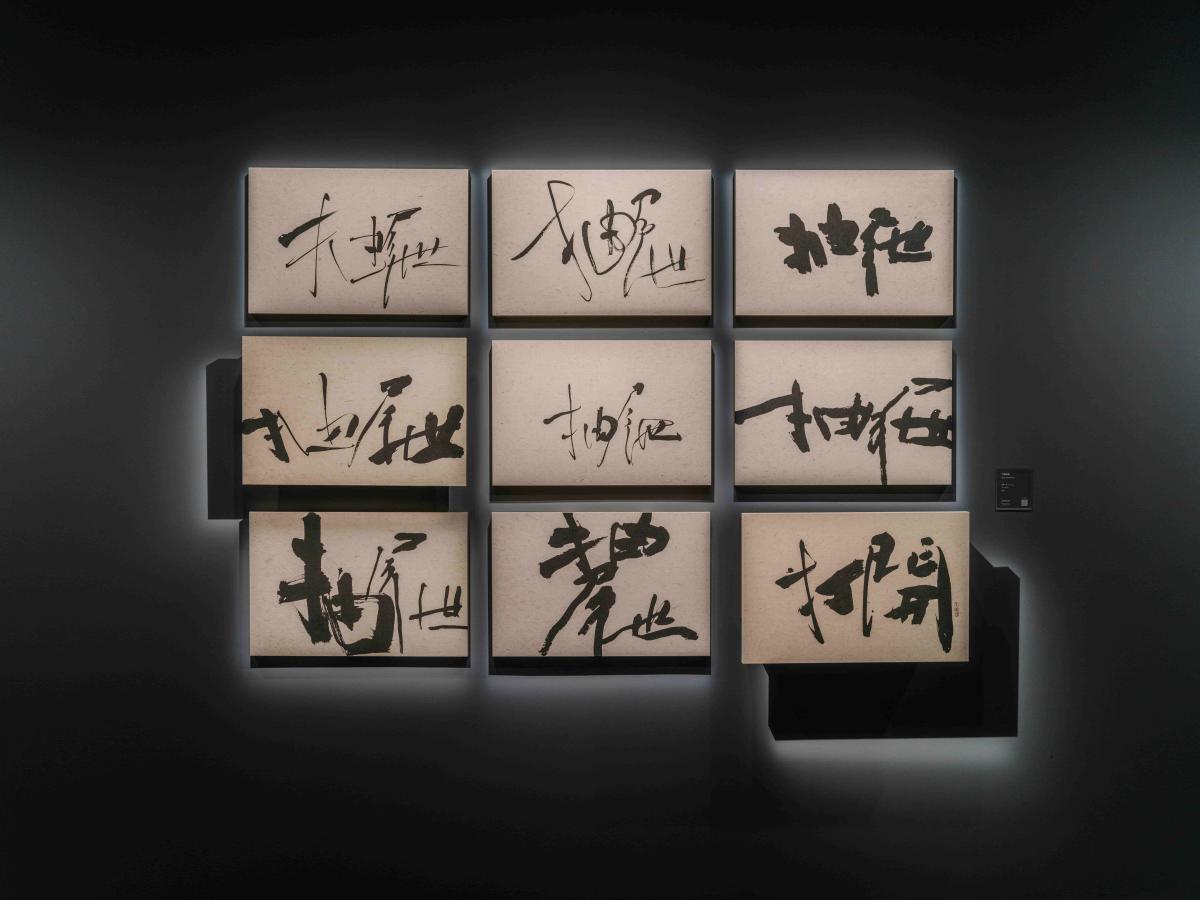 抽屜
抽屜
抽屜
抽屜
抽屜
抽屜
抽屜
抽屜
打開